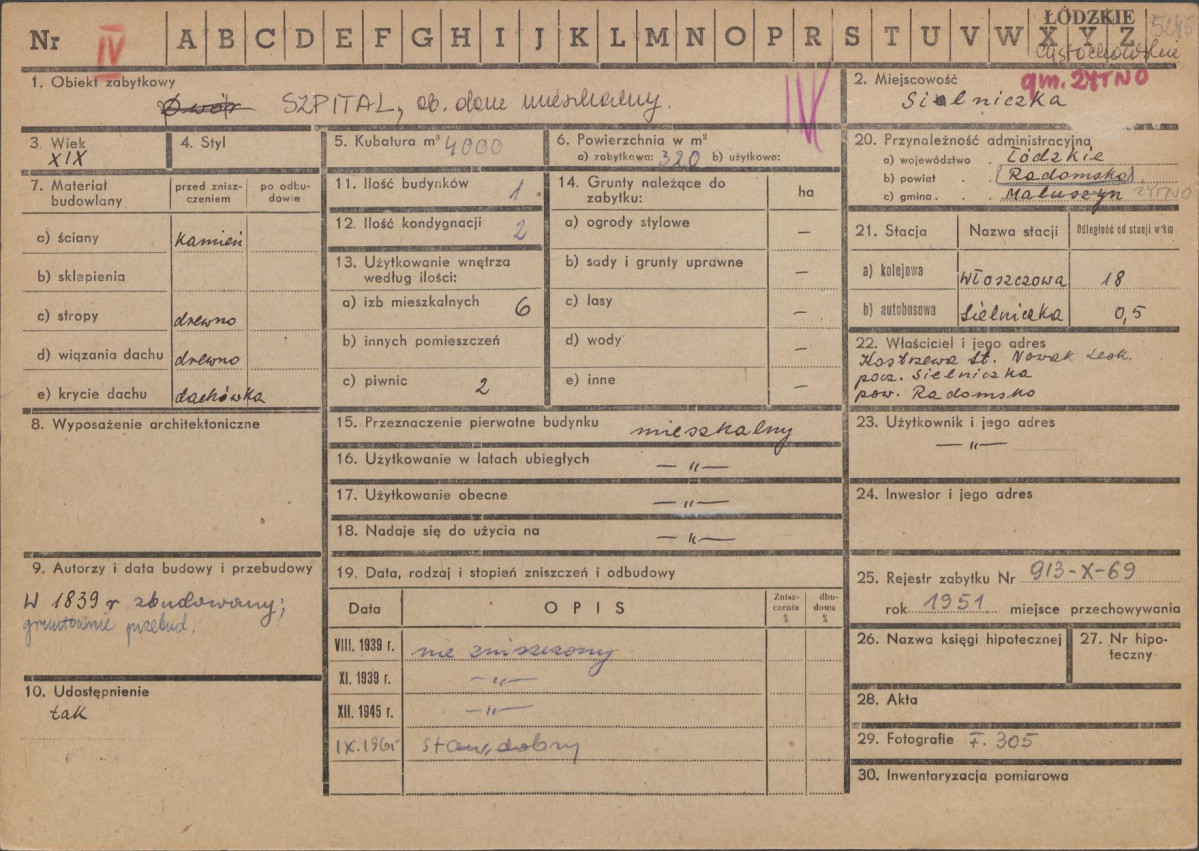 Nr IV A B C D E F G H I J K L M N O P R S T U V W X Y Z
ŁÓDZKIE
1. Obiekt zabytkowy
Dwór SZPITAL, ob. dom mieszkalny.
IV
2. Miejscowość gm. ŻYTNO
Sielniczka
3. Wiek
XIX
4. Styl
5. Kubatura m³ 4000
6. Powierzchnia w m²
a) zabytkowa: 320 b) użytkowe:
20. Przynależność administracyjna
a) województwo . Łódzkie
b) powiat . . Radomsko
c) gmina . . Maluszyn ŻYTNO
7. Materiał budowlany
przed zniszczeniem
po odbudowie
a) ściany kamień
b) sklepienia
c) stropy drewno
d) wiązania dachu drewno
e) krycie dachu dachówka
11. Ilość budynków 1
12. Ilość kondygnacji 2
13. Użytkowanie wnętrza
według ilości:
a) izb mieszkalnych 6
b) innych pomieszczeń
c) piwnic 2
14. Grunty należące do
zabytku:
ha
a) ogrody stylowe —
b) sady i grunty uprawne —
c) lasy —
d) wody —
e) inne —
21. Stacja Nazwa stacji Odległość od stacji w km
a) kolejowa Włoszczowa 18
b) autobusowa Sielniczka 0,5
22. Właściciel i jego adres
Kostrzewa St. Nowak Leok.
pocz. Sielniczka
pow. Radomsko
8. Wyposażenie architektoniczne
15. Przeznaczenie pierwotne budynku mieszkalny
16. Użytkowanie w latach ubiegłych —"—
17. Użytkowanie obecne —"—
18. Nadaje się do użycia na —"—
23. Użytkownik i jego adres
—"—
24. Inwestor i jego adres
9. Autorzy i data budowy i przebudowy
W 1839 r zbudowany;
gruntownie przebud.
10. Udostępnienie
tak
19. Data, rodzaj i stopień zniszczeń i odbudowy
Data OPIS Zniszczenia % dbudowa %
VIII. 1939 r. nie zniszczony
XI. 1939 r. —"—
XII. 1945 r. —"—
IX.1965 stan dobry
25. Rejestr zabytku Nr 913-X-69
rok 1951 miejsce przechowywania
26. Nazwa księgi hipotecznej
27. Nr hipoteczny
28. Akta
29. Fotografie F. 305
30. Inwentaryzacja pomiarowa